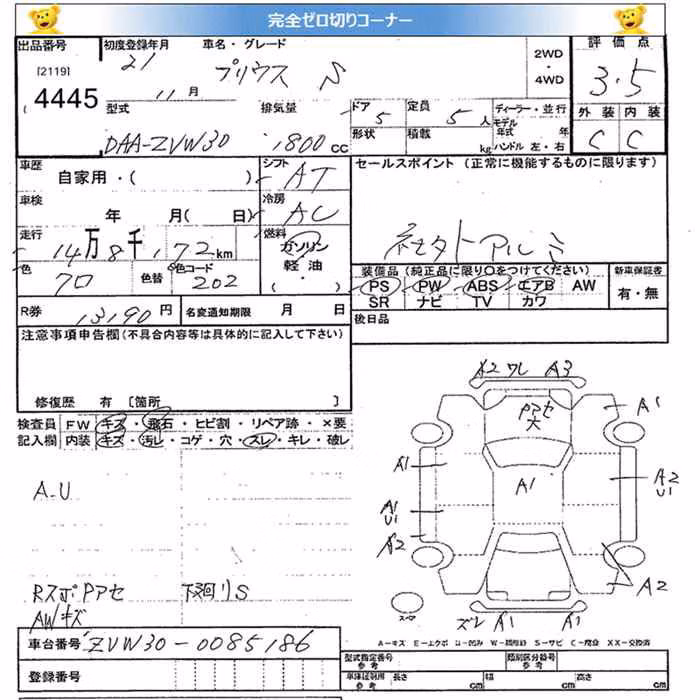 完全ゼロ切りコーナー
出品番号
[2119]
4445
初度登録年月
21
11月
車名・グレード
プリウス S
2WD
・
4WD
評価点
3.5
型式
DAA-ZVW30
排気量
1800cc
ドア
5
定員
5人
ディーラー・並行
モデル年式 年
形状
積載 kg
ハンドル 左・右
外装 内装
C C
車歴
自家用・( )
シフト
AT
セールスポイント (正常に機能するものに限ります)
車検
年 月( 日)
冷房
AC
走行
14万8千172km
燃料
ガソリン
軽油
・( )
色
クロ
色替
色コード
202
装備品 (純正品に限り○をつけてください)
PS PW ABS エアB AW
SR ナビ TV カワ
新車保証書
有・無
R券
13190円
名変通知期限 月 日
後日品
注意事項申告欄(不具合内容等は具体的に記入して下さい)
修復歴 有 [箇所 ]
検査員
記入欄
FW キズ・飛石・ヒビ割・リペア跡・×要
内装 キズ・汚レ・コゲ・穴・スレ・キレ・破レ
A2 ワレ A3
Pアセ
大
A1
A1
A1
A2
U1
A1
U1
A2
A2
A-U
RスポPアセ 下廻りS
AWキズ
スペアー
ズレ A1 A1
A-キズ E-エクボ U-凹み W-補修跡 S-サビ C-腐食 XX-交換済
車台番号 ZVW30-0085186
登録番号
型式指定番号
参考
類別区分番号
参考
車庫証明用
参考
長さ cm
幅 cm
高さ cm